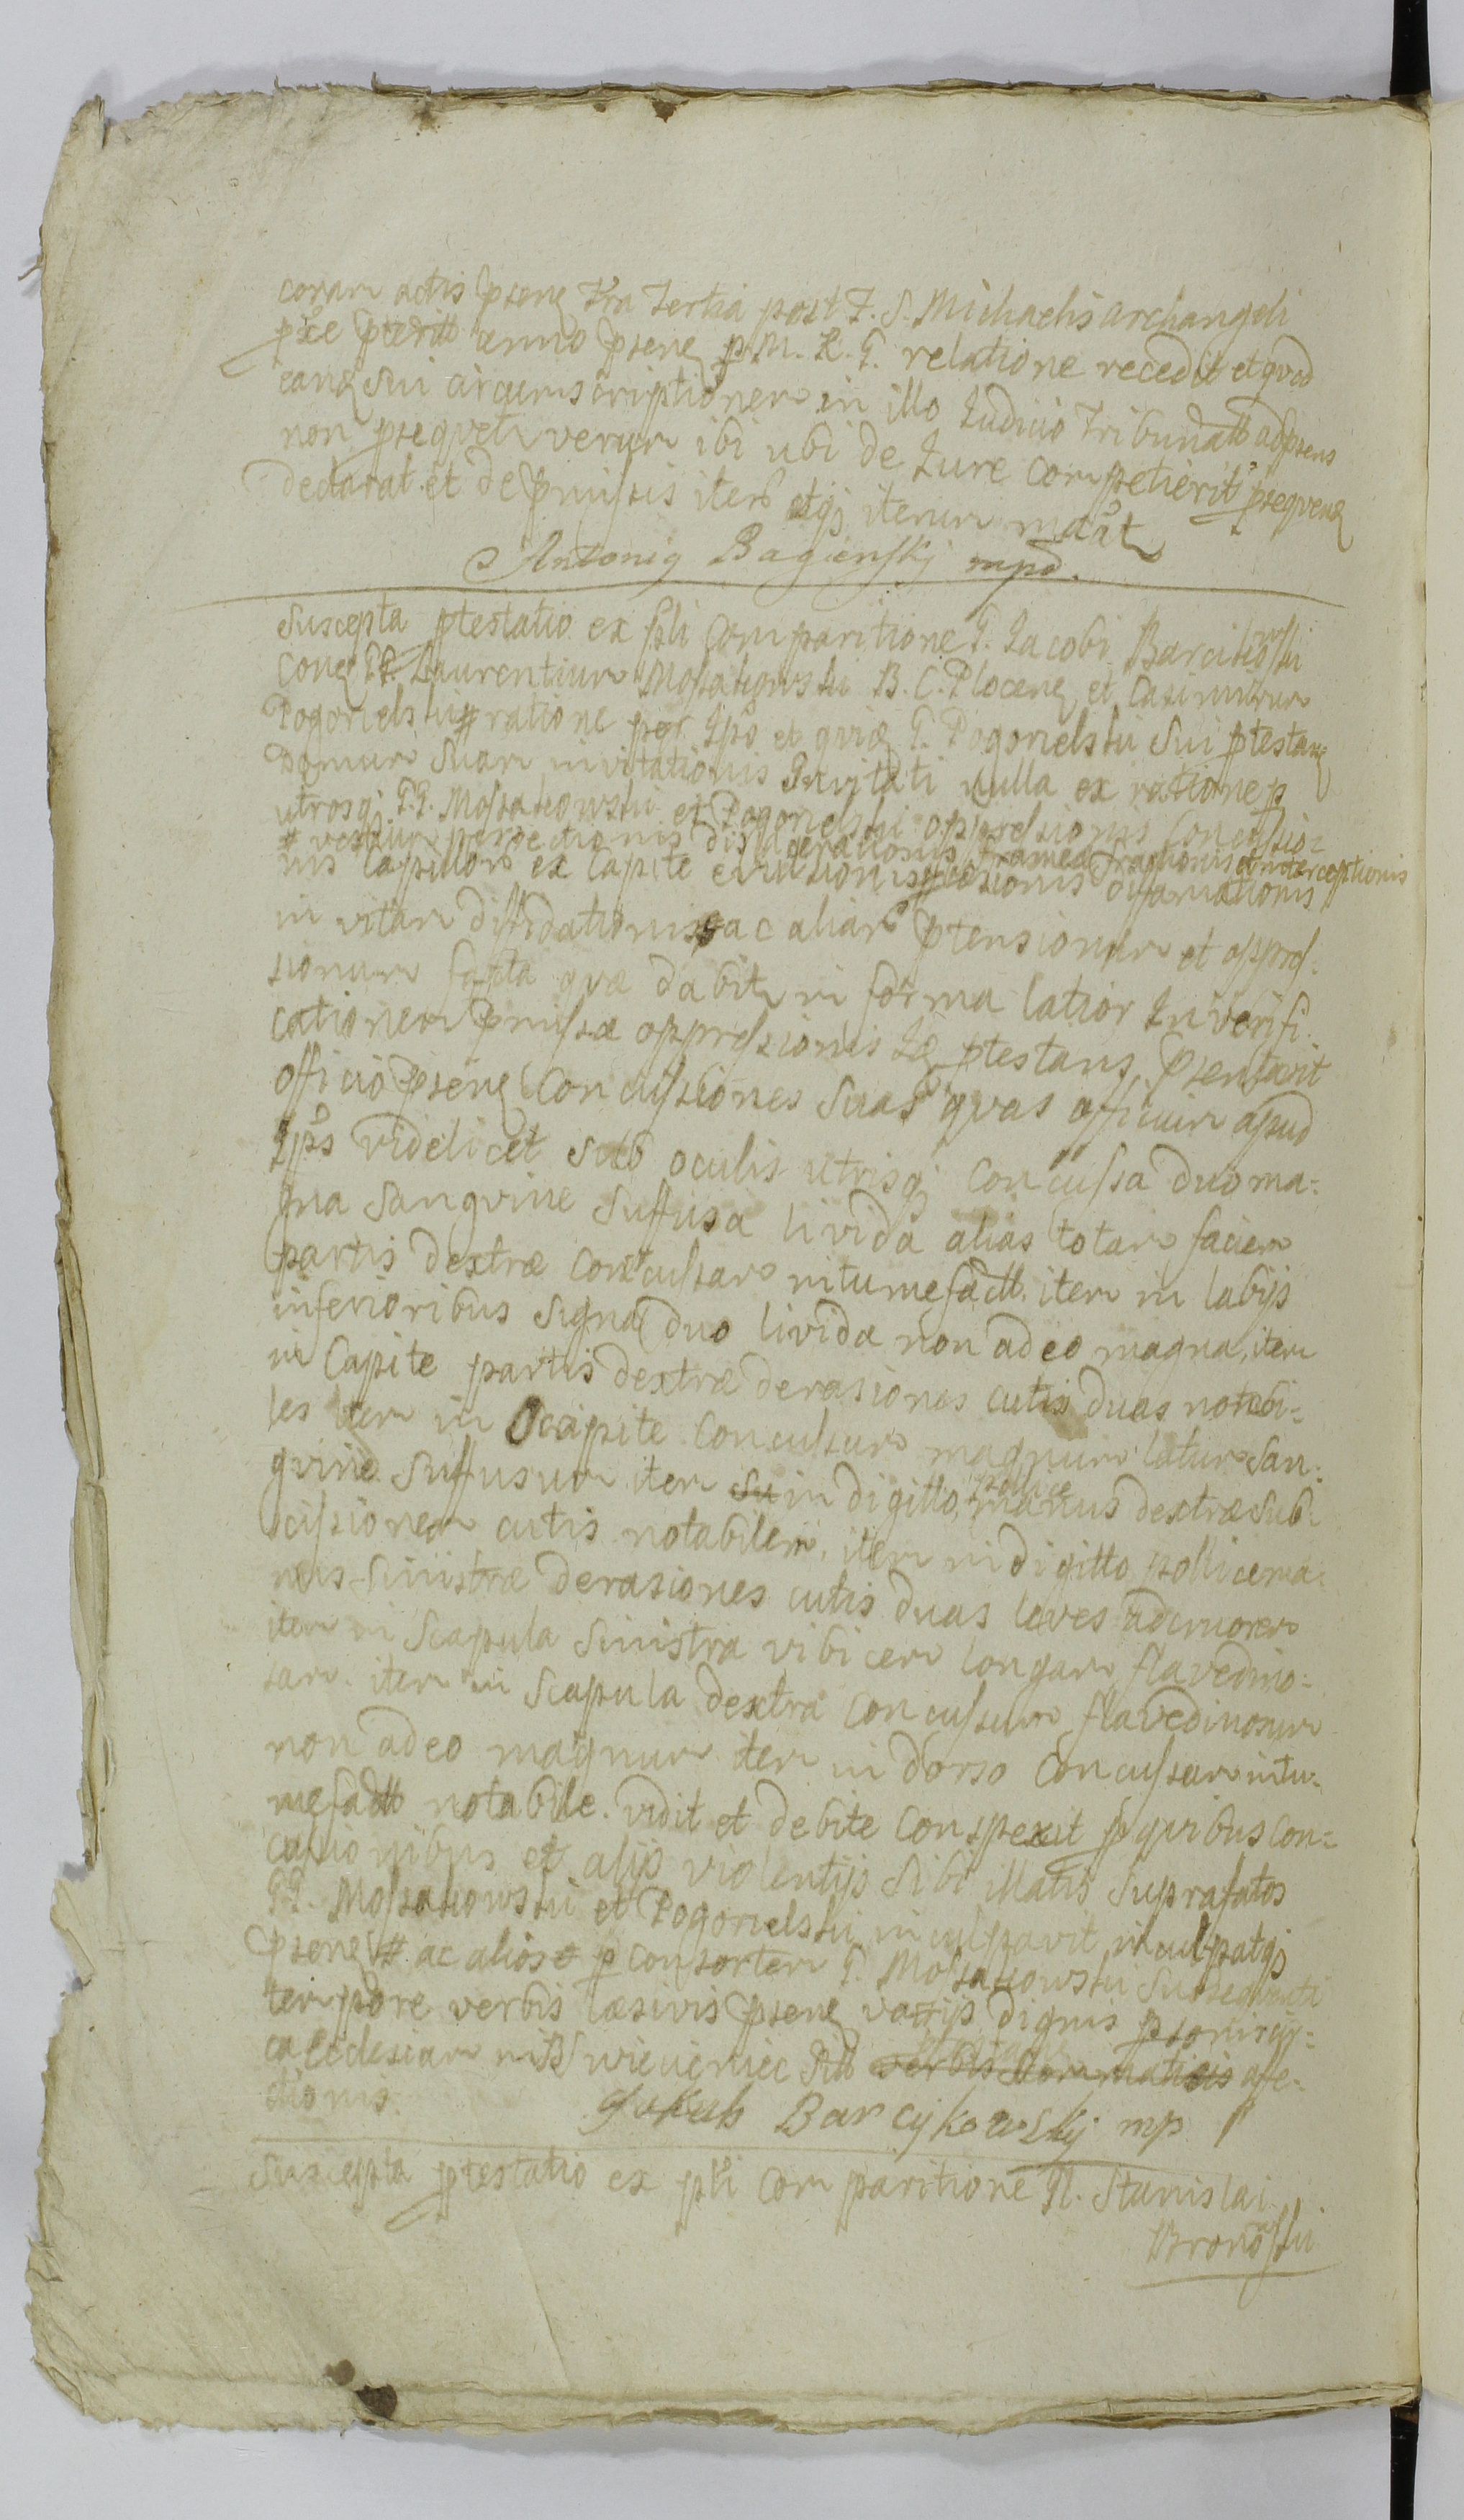 coram actis psenq fra tertia post F. S. Michaelis archangeli
pxe pterit anno psenq p M. R. G. relatione recedit et qvod
eanq sui circumscriptionem in illo Iudicio Tribunat adpsens
non pseqvetr verum ibi ubi de Iure competierit pseqvenq
declarat et de pmissis iter atqj iterum mdat
Antonig Bagienskj mpd.
Suscepta ptestatio ex psli Comparitione G. Iacobi Barcikowski
Conq GG. Laurentium Mossakowski B. C. Plocenq et Casimirum
Pogorzelski # ratione per Ipso et gvia G. Pogorzelski sui ptestanq
Domum Suam invitationis Invitati nulla ex ratione p
utrosqj GG. Mossakowski et Pogorzelski oppressionis Concussio=
# vestium dislacerationis frameae fractionis et interceptionis
nis Capillor ex Capite evulsionis diffamationis
in vitam diffidationis ac aliar ptensionum et oppres=
sionum facta qvae dabitr in forma latior In verifi=
cationem pmissae oppressionis Idq ptestans psentavit
officio psenq Concussiones Suas qvas officium apud
Ipss videlicet sub oculis utrisqj Concussa duo ma=
gna Sangvine Suffusa livida alias totam faciem
partis dextrae Concussam intumefact. item in labijs
inferioribus Signa duo livida non adeo magna, item
in Capite partis dextrae derasiones cutis duas notabi=
les item in Occipite Concussum magnum latum San=
gvine Suffusum item in digitto pollice manus dextrae Sub=
scissionem cutis notabilem, item in digitto pollice ma=
nus Sinistrae derasiones cutis duas leves adcruorem
item in Scapula Sinistra vibicem longam flavedino=
sam item in Scapula dextra Concussum flavedinosum
non adeo magnum item in dorso Concussum intu=
mefact notabile. vidit et debite Conspexit p qvibus Con=
cussionibus et alijs violentijs Sibi illatis Suprafatos
GG. Mossakowski et Pogorzelski inculpavit inculpatqj
psenq # ac alios p Consortem G. Mossakowski Subseqventi
tempore verbis laesivis psenq varijs dignis
Ecclesiam in Swiecieniec
ctionis. Jakub Barcykowskj mp
Suscepta ptestatio ex psli Comparitione Gl. Stanislai
Bronowski